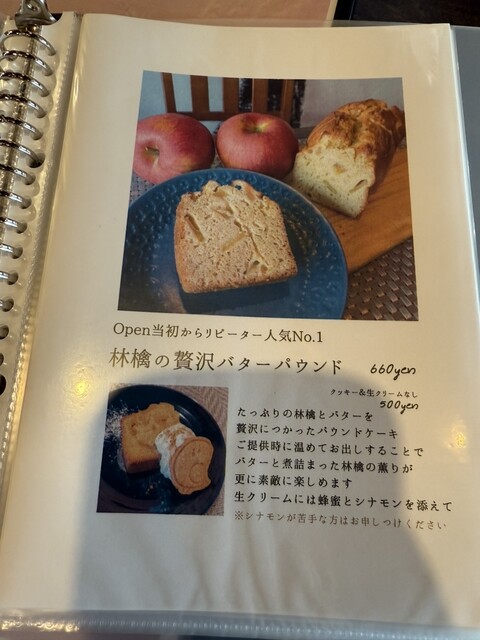 Open当初からリピーター人気No.1
林檎の贅沢バターパウンド 660yen
クッキー&生クリームなし
500yen
たっぷりの林檎とバターを
贅沢につかったパウンドケーキ
ご提供時に温めてお出しすることで
バターと煮詰まった林檎の薫りが
更に素敵に楽しめます
生クリームには蜂蜜とシナモンを添えて
※シナモンが苦手な方はお申しつけください